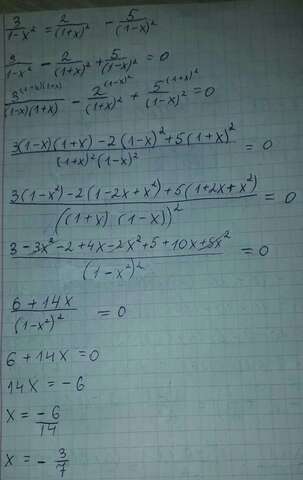 3/(1-x²) = 2/(1+x)² - 5/(1-x)²
3/(1-x²) - 2/(1+x)² + 5/(1-x)² = 0
3^((1+x)(1-x))/((1-x)(1+x)) - 2^((1-x)²)/(1+x)² + 5^((1+x)²)/(1-x)² = 0
(3(1-x)(1+x) - 2(1-x)² + 5(1+x)²)/((1+x)²(1-x)²) = 0
(3(1-x²) - 2(1-2x+x²) + 5(1+2x+x²))/((1+x)(1-x))² = 0
(3-3x²-2+4x-2x²+5+10x+5x²)/(1-x²)² = 0
(6+14x)/(1-x²)² = 0
6+14x=0
14x = -6
x = -6/14
x = -3/7